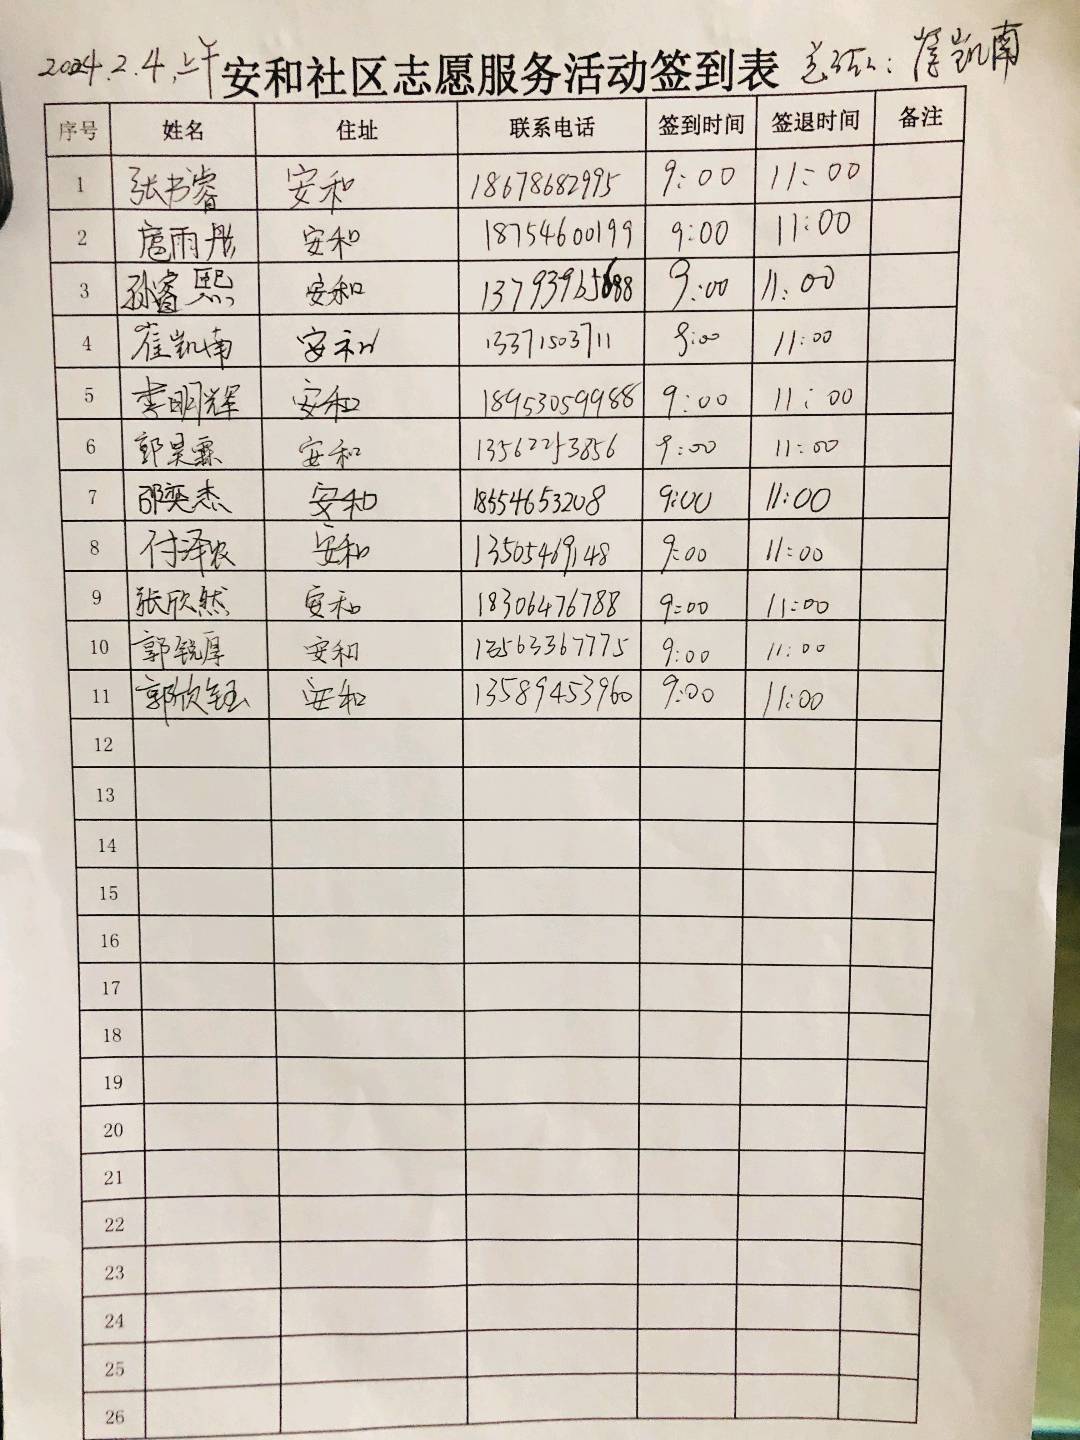 2024.2.4.上午 安和社区志愿服务活动签到表 总负责人：崔凯南
序号 姓名 住址 联系电话 签到时间 签退时间 备注
1 张书睿 安和 18678682995 9:00 11:00
2 扈雨彤 安和 18754600199 9:00 11:00
3 孙睿熙 安和 9:00 11:00
4 崔凯南 安和 13371503711 9:00 11:00
5 李明辉 安和 18953059988 9:00 11:00
6 郭昊霖 安和 13562253856 9:00 11:00
7 邵奕杰 安和 18554653208 9:00 11:00
8 付泽农 安和 13505469148 9:00 11:00
9 张欣然 安和 18306476788 9:00 11:00
10 郭锐厚 安和 13563367775 9:00 11:00
11 郭欣钰 安和 13589453960 9:00 11:00
12
13
14
15
16
17
18
19
20
21
22
23
24
25
26